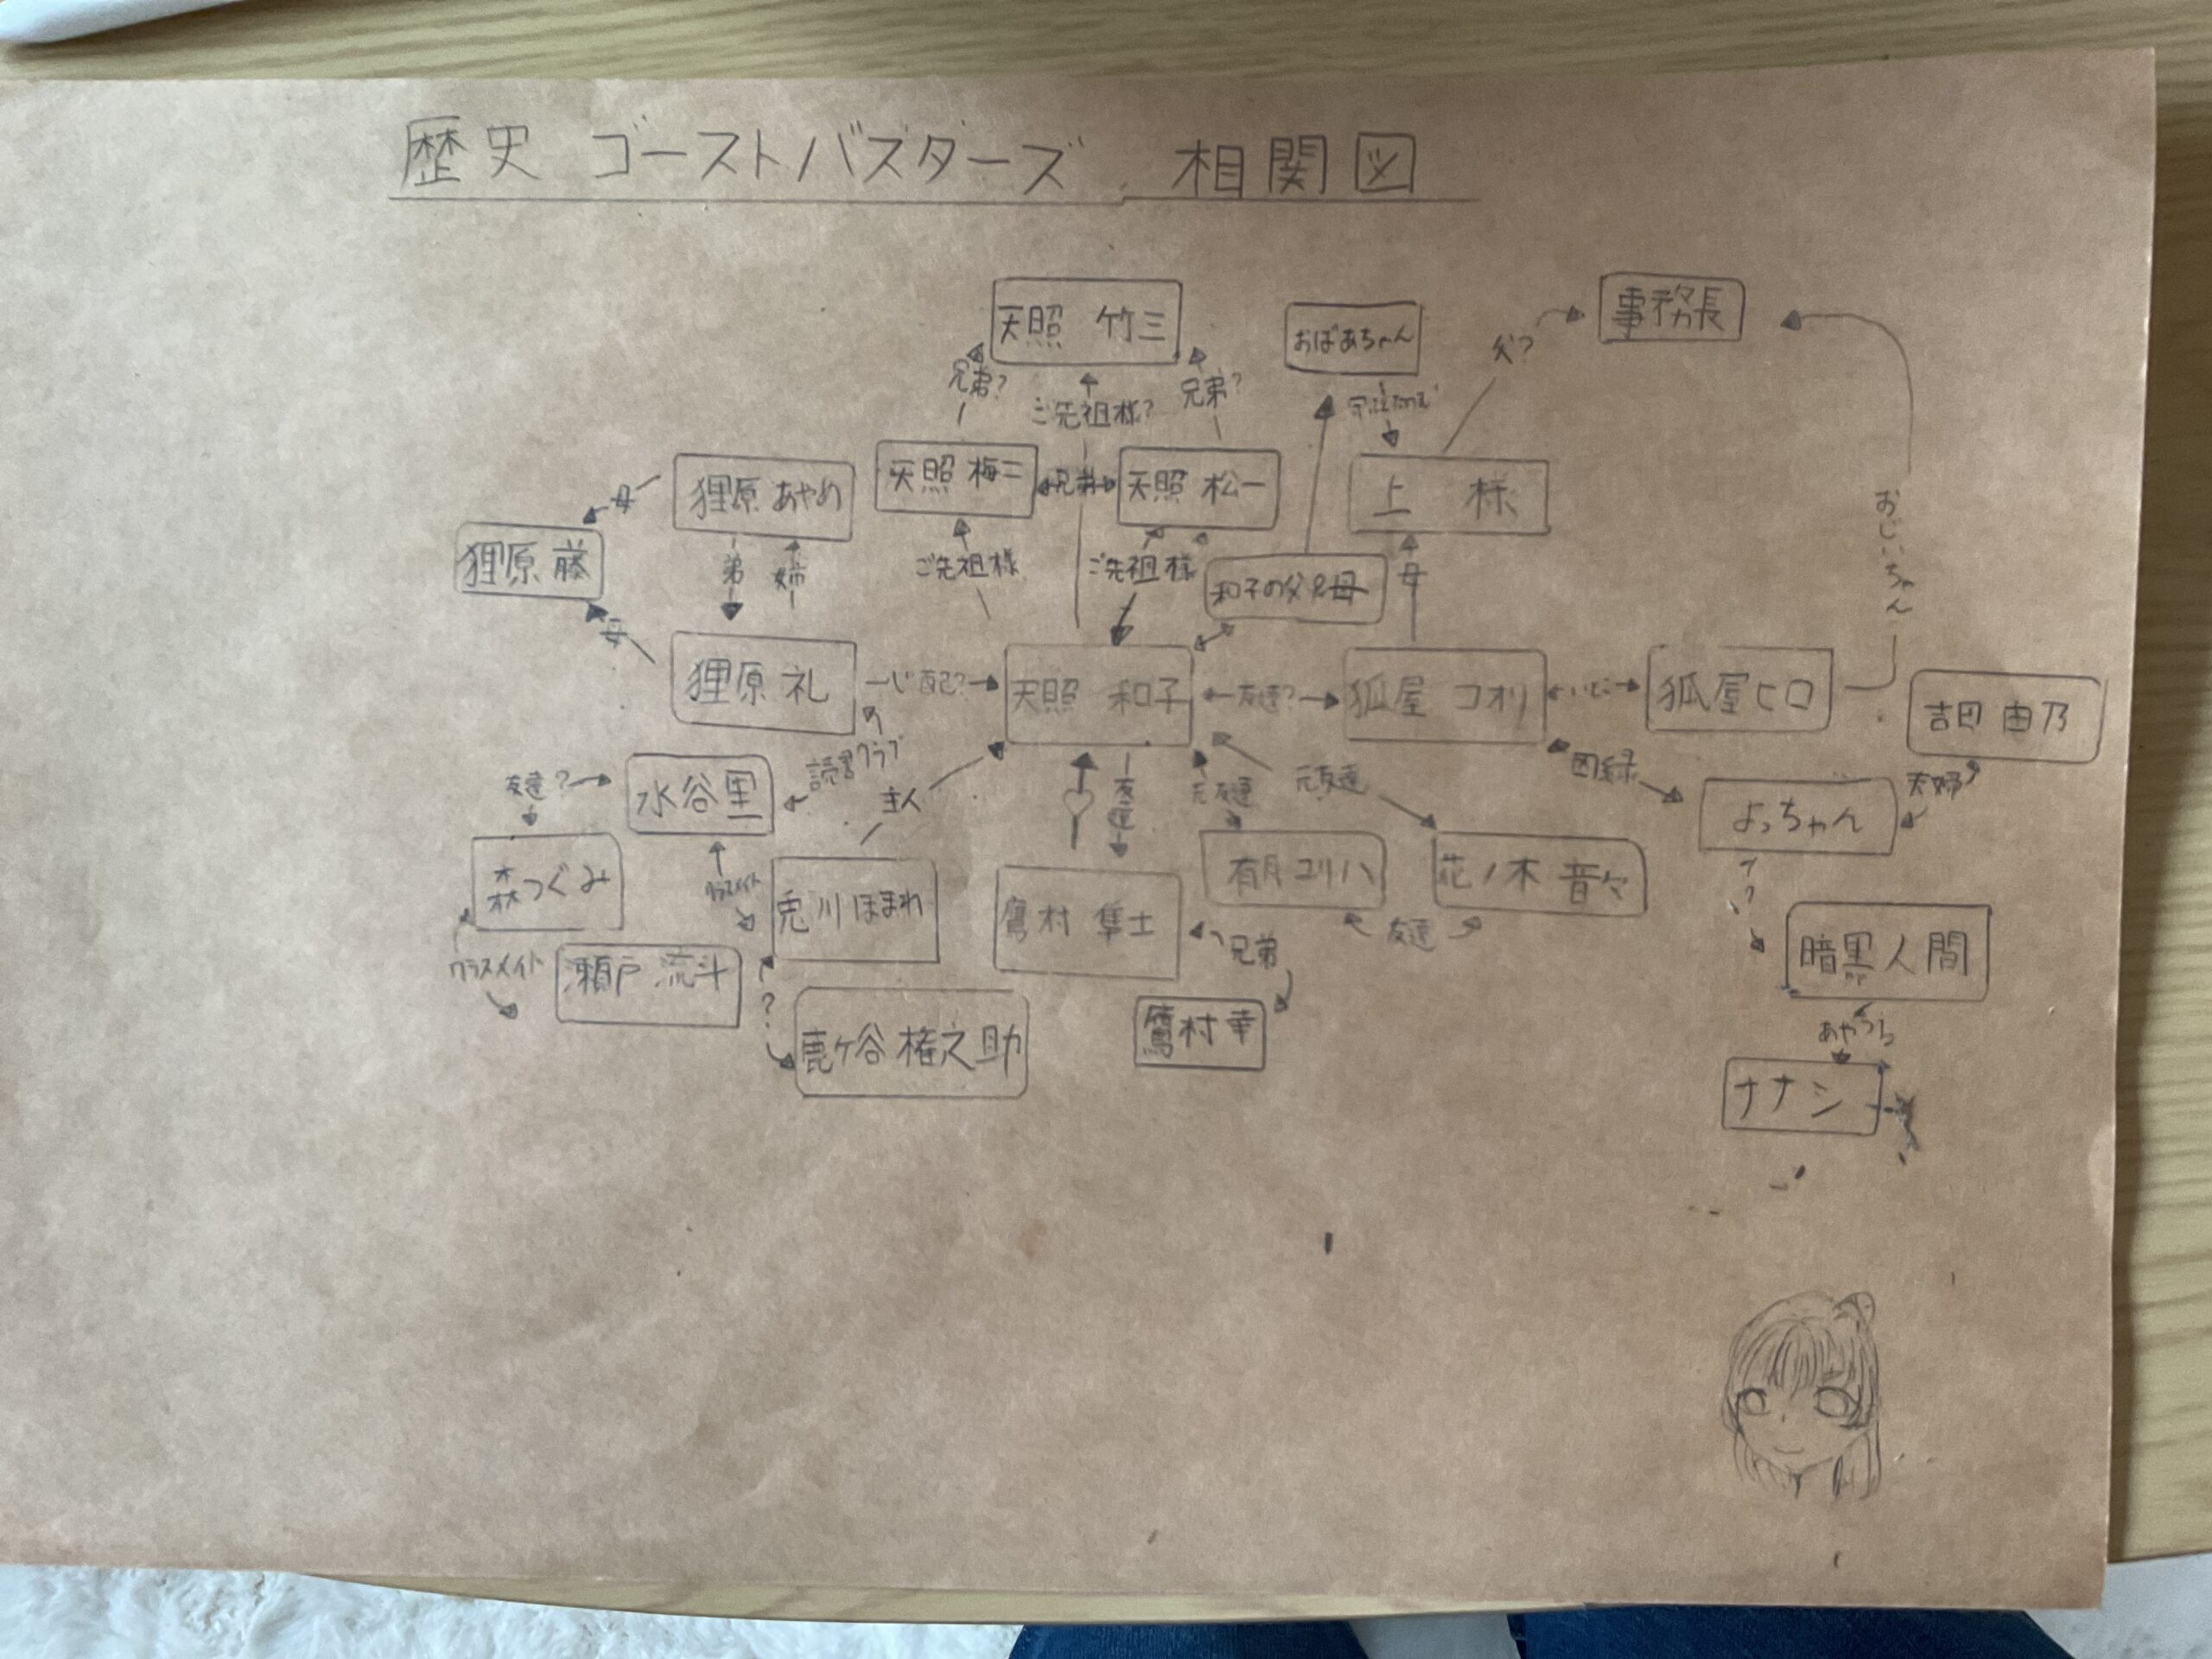 歴史 ゴーストバスターズ 相関図
天照 竹三
おばあちゃん
事務長
父?
兄弟?
ご先祖様?
兄弟?
狸原 あやめ
天照 梅二
兄弟
天照 松一
上 様
母
狸原 藤
おじいちゃん
弟
姉
ご先祖様
ご先祖様
和子の父
母
母
狸原 礼
心配?
天照 和子
友達?
狐屋 コオリ
いとこ
狐屋 ヒロ
吉田 由乃
読書クラブ
友達?
水谷 里
主人
友達
元友達
元友達
因縁
よっちゃん
夫婦
森 つぐみ
クラスメイト
兎川 ほまれ
鷹村 隼士
有月 ユリハ
花ノ木 音々
?
友達
兄弟
クラスメイト
瀬戸 流斗
暗黒人間
?
鹿ケ谷 権之助
鷹村 幸
あやつる
ナナシ